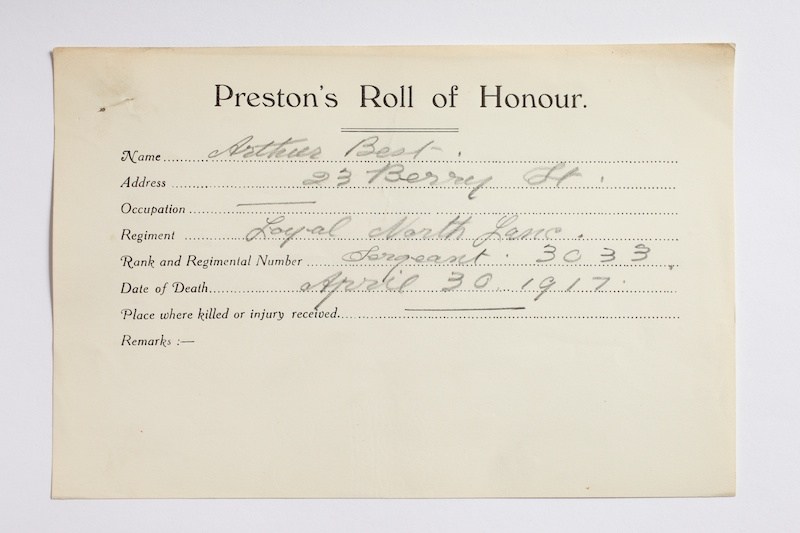 Preston's Roll of Honour.
Name Arthur Best.
Address 23 Berry St.
Occupation ———
Regiment Loyal North Lanc.
Rank and Regimental Number Sergeant. 3033
Date of Death April 30 1917
Place where killed or injury received. ———
Remarks :—